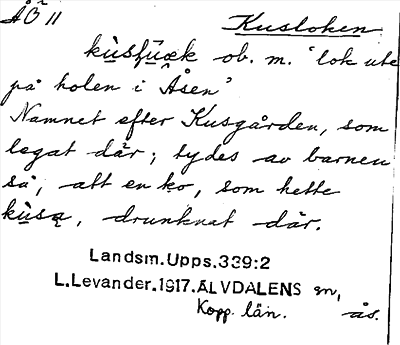 ÅÖ 11
Kusloken
kùsļū̀æk ob. m. ʿlok ute
på holen i Åsenʾ
Namnet efter Kusgården, som
legat där; tydes av barnen
så, att en ko, som hette
kùsą, drunknat där.
Landsm.Upps.339:2
L.Levander.1917.ÄLVDALENS sn,
Kopp. län. ås.